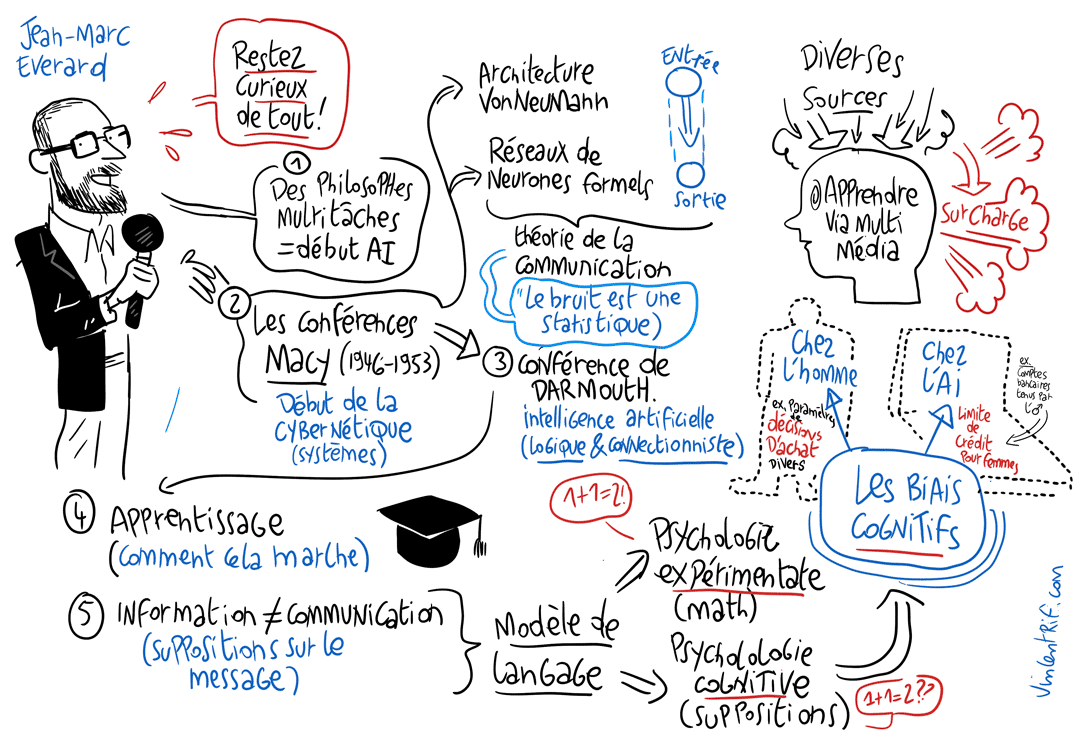 Jean-Marc
Everard
Restez
curieux
de tout!
1
Des Philosophes
Mulritâches
= début AI
2
Les conférences
Macy (1946-1953)
Début de la
Cybernétique
(systèmes)
Architecture
VonNeumann
Réseaux de
Neurones formels
Entrée
Sortie
théorie de la
communication
"Le bruit est une
statistique)
3
Conférence de
Darmouth.
intelligence artificielle
(logique & connectionniste)
4
Apprentissage
(comment cela marche)
5
Information ≠ communication
(suppositions sur le
message)
Modèle de
langage
1+1=2!
Psychologie
expérimentate
(math)
Psycholologie
cognitive
(suppositions)
1+1=2??
Diverses
Sources
@Apprendre
Via Multi
Média
Surcharge
Chez
l'homme
ex. Paramètres
de
décisions
D'achat
Divers
Chez
l'Ai
ex
Comptes
bancaires
tenus par
l'♂
Limite
de
Crédit
Pour femmes
Les Biais
cognitifs
VincentRif.com